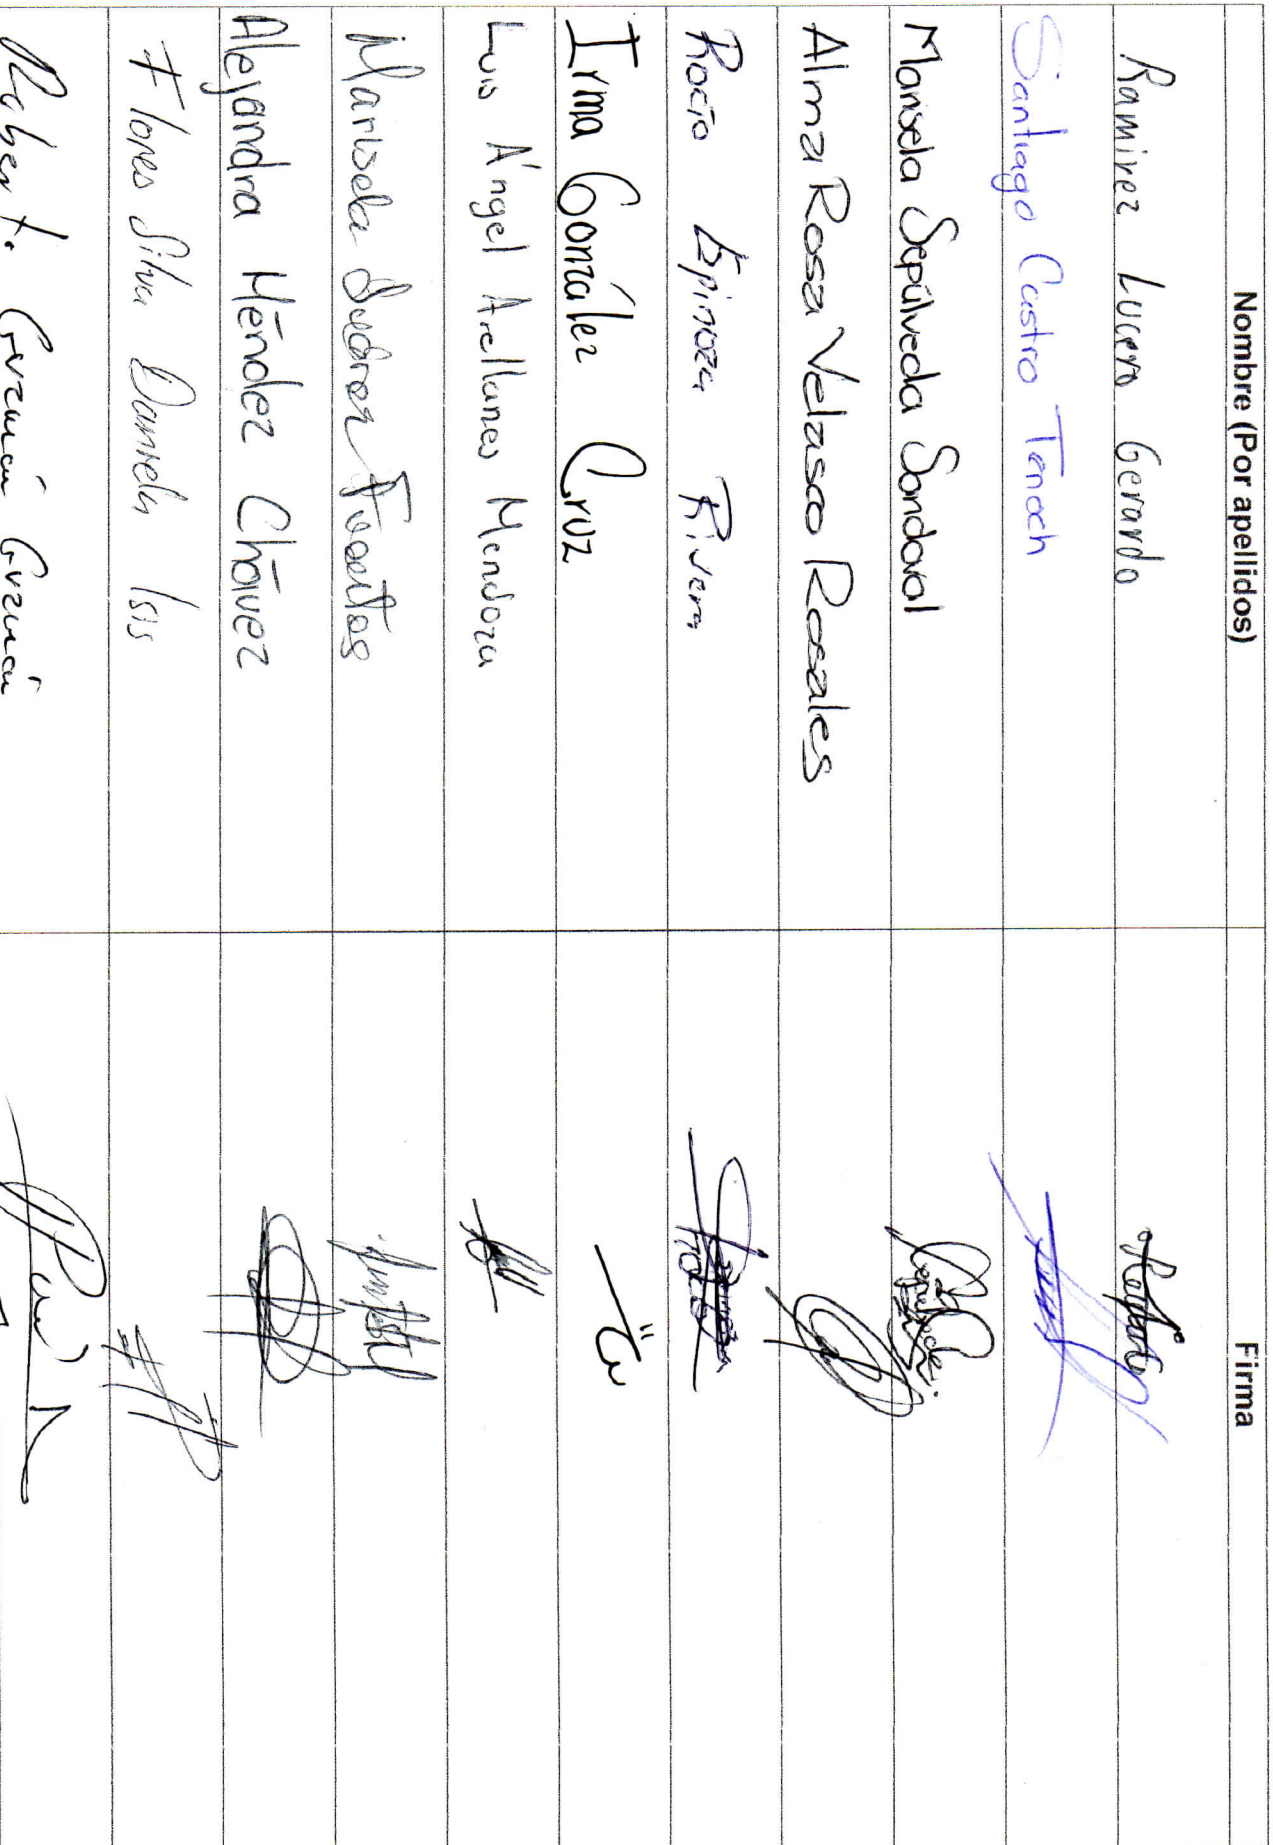 Nombre (Por apellidos) Firma
Ramirez Lucero Gerardo
Santiago Castro Tenoch
Marisela Sepúlveda Sandoval
Alma Rosa Velasco Rosales
Rocío Espinoza Rivera
Irma González Cruz
Luis Ángel Arellanes Mendoza
Marisela Suárez Fuentes
Alejandra Méndez Chávez
Flores Silva Daniela Isis
Roberto Guzmán Guzmán